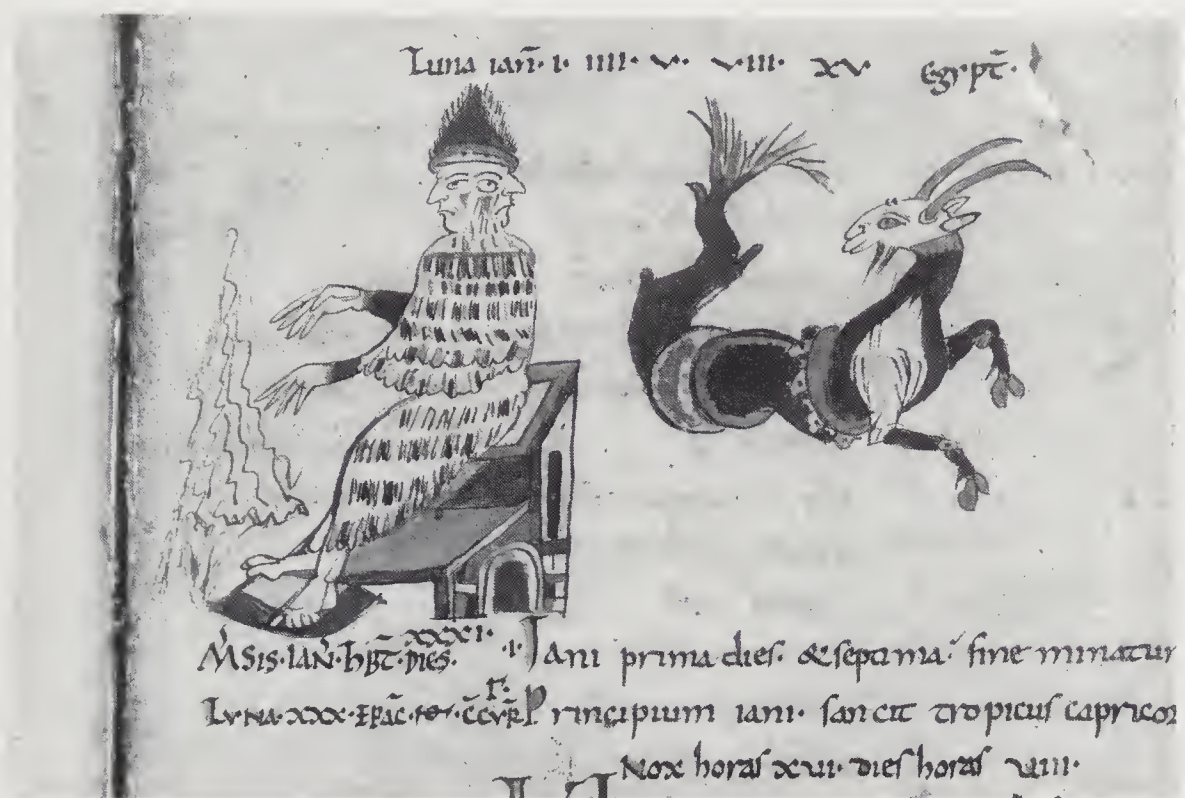 Luna ian̄· i· iiii· v· viii· xv· Egypt̄·
xxxi·
M̄sis· IAN̄· hBT̄· DIES· ·I· JAni prima dies· & septima· fine minatur
LVNA· xxx· EPAC̄· Principium iani· sancit tropicus capricor
Nox horas xvi· dies horas viii·